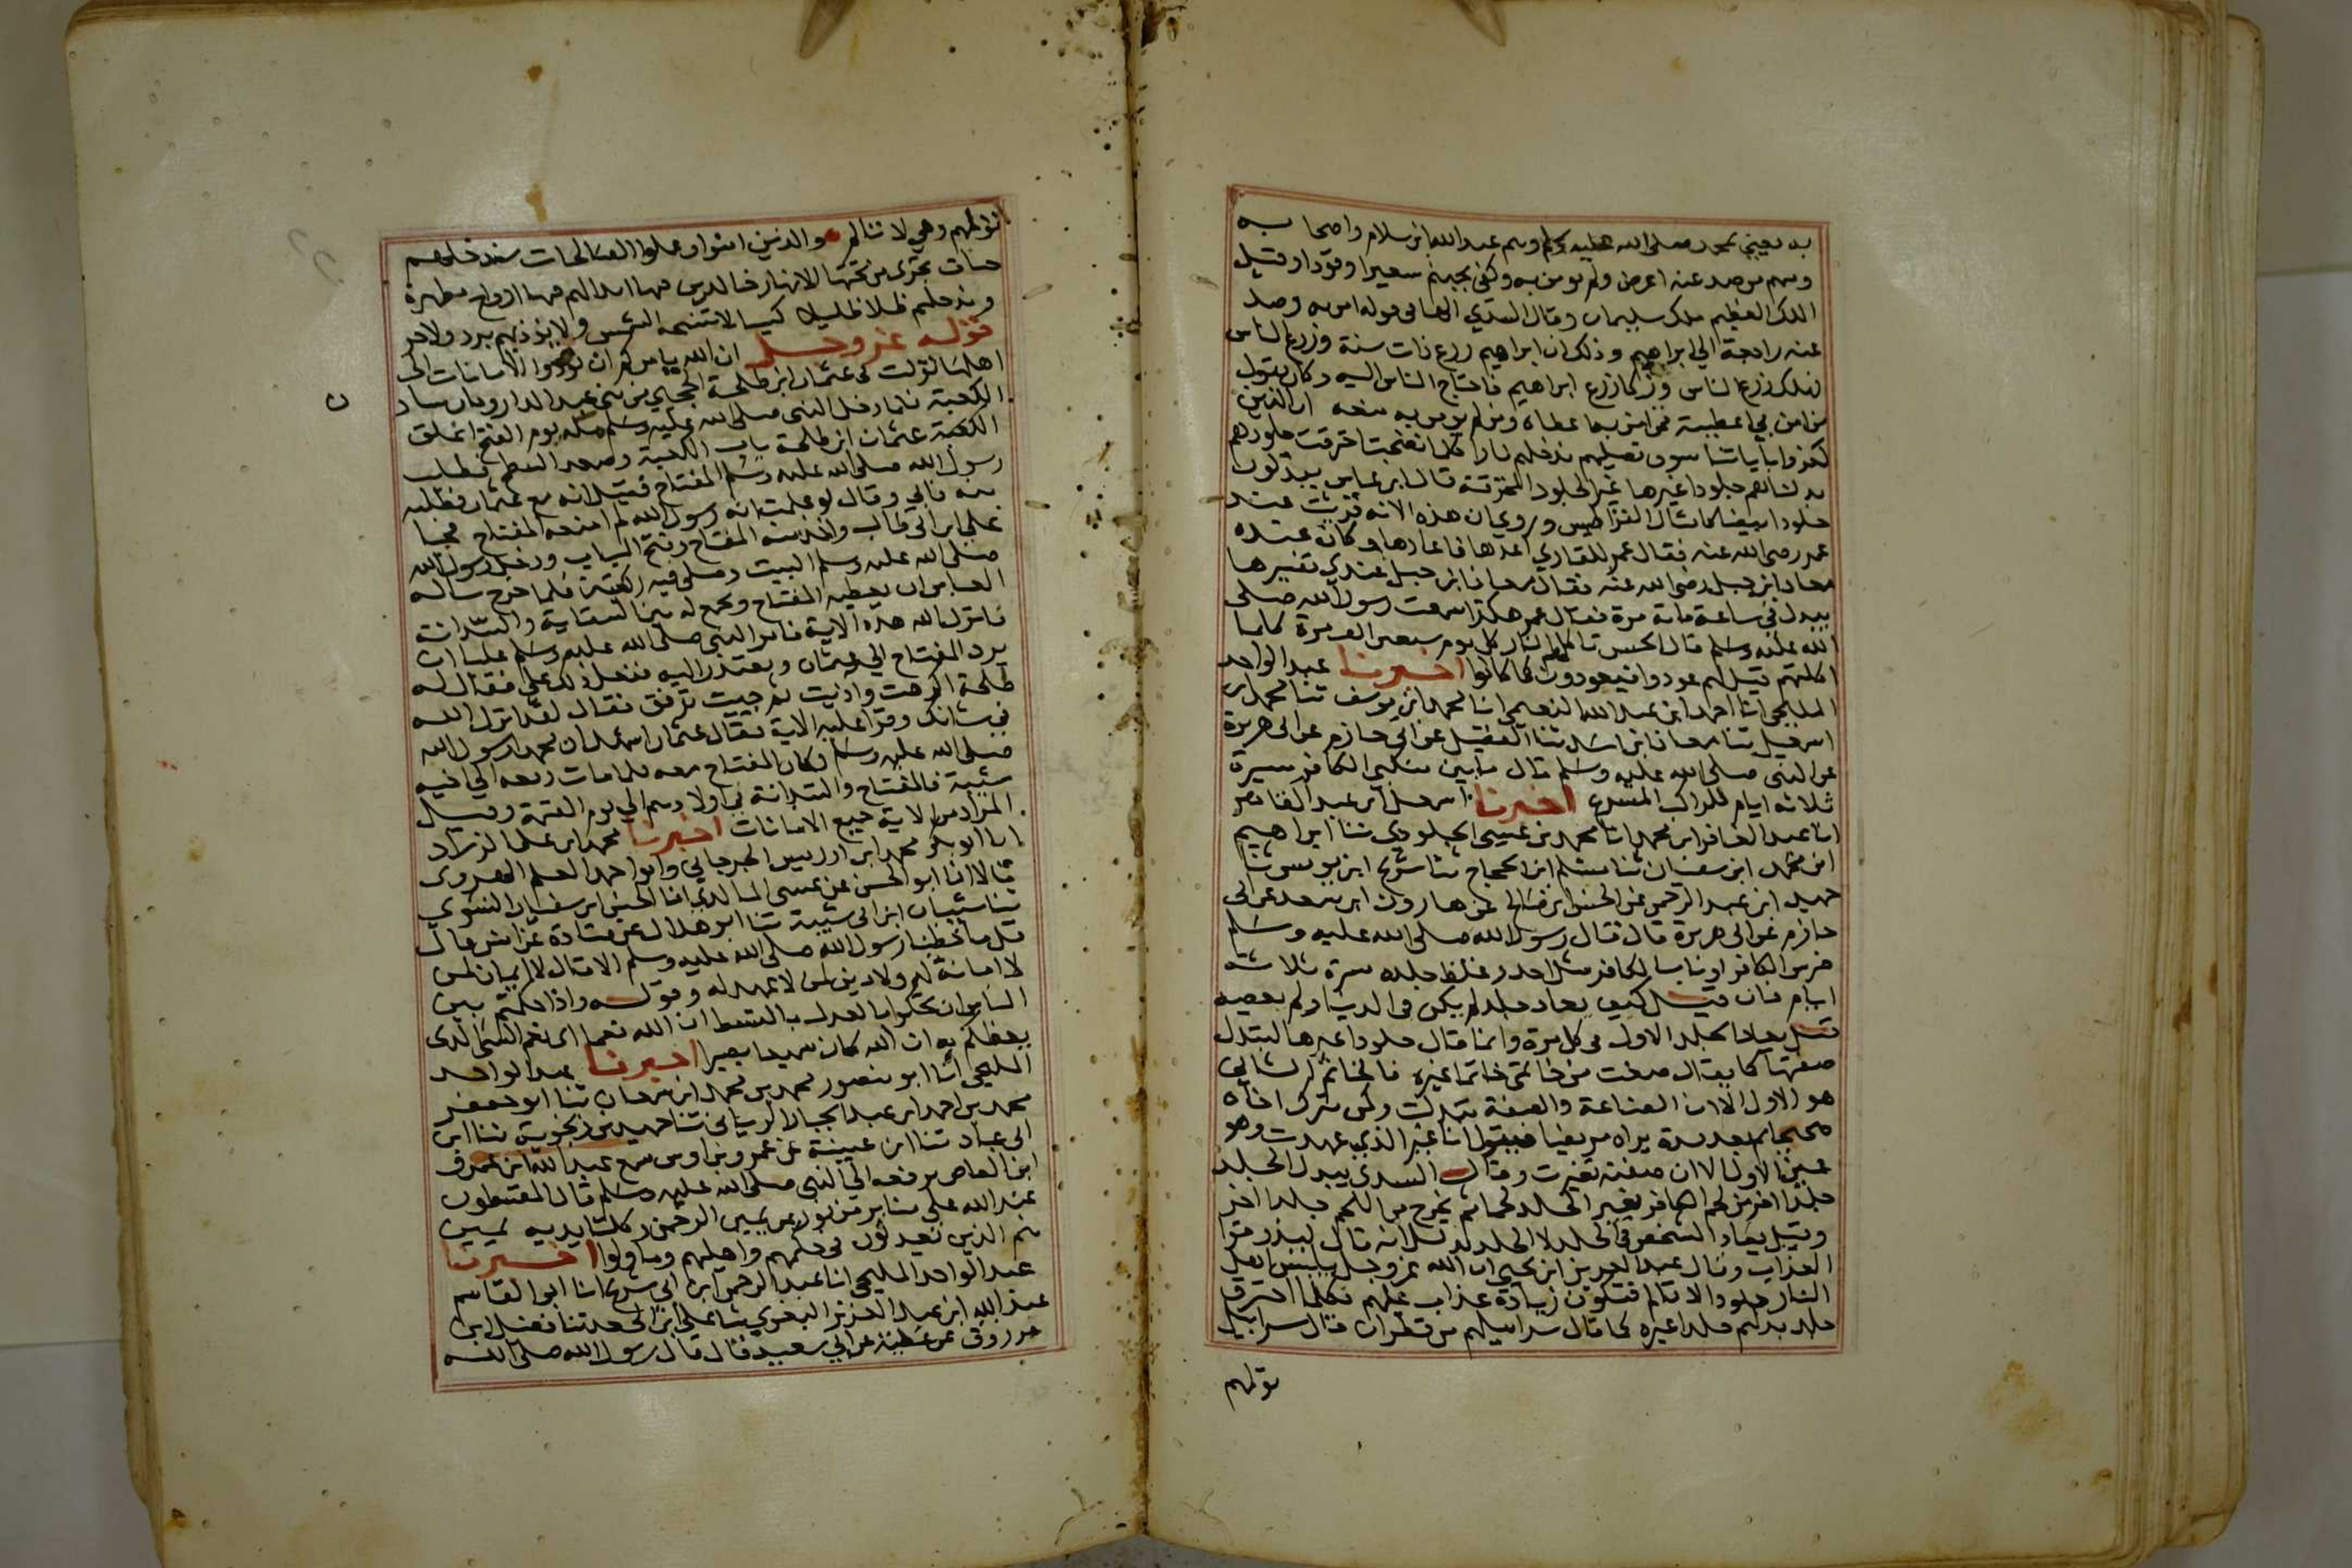 به يعني بمحمد صلى الله عليه وسلم وهم عبد الله ابن سلام واصحابه
ومنهم من صد عنه اعرض ولم يومن به وكفى بجهنم سعيرا وقودا وقيل
الملك العظيم ملك سليمان وقال السدي الهاء في قوله امن به وصد
عنه راجعة الي ابراهيم وذلك ان ابراهيم زرع ذات سنة وزرع الناس
فهلك زرع الناس وزكا زرع ابراهيم فاحتاج الناس اليه وكان يقول
من امن بي اعطيته فمن امن به اعطاه ومن لم يومن به منعه ان الذين
كفروا باياتنا سوف نصليهم ندخلهم نارا كلما نضجت احترقت جلودهم
بدلناهم جلودا غيرها غير الجلود المحترقة قال ابن عباس يبدلون
جلودا بيضا كامثال القراطيس وروي ان هذه الاية قريت عند
عمر رضي الله عنه فقال عمر للقاري اعدها فاعادها وكان عنده
معاذ ابن جبل رضي الله عنه فقال معاذ ابن جبل عندي تفسيرها
يبدل في ساعة ماية مرة فقال عمر هكذا سمعت رسول الله صلى
الله عليه وسلم قال الحسن تاكلهم النار كل يوم سبعين الف مرة كلما
اكلتهم قيل لهم عودوا فيعودون كما كانوا اخبرنا عبد الواحد
المليحي انا احمد ابن عبد الله النعيمي انا محمد ابن يوسف ثنا محمد ابن
اسمعيل ثنا معاذ ابن اسد ثنا الفضيل عن ابي حازم عن ابي هريرة
عن النبي صلى الله عليه وسلم قال ما بين منكبي الكافر مسيرة
ثلاثة ايام للراكب المسرع اخبرنا اسمعيل ابن عبد القاهر
انا عبد الغافر ابن محمد انا محمد بن عيسى الجلودي ثنا ابراهيم
ابن محمد ابن سفيان ثنا مسلم ابن الحجاج ثنا شريح ابن يونس ثنا
حميد ابن عبد الرحمن عن الحسن ابن صالح عن هارون ابن سعد عن ابي
حازم عن ابي هريرة قال قال رسول الله صلى الله عليه وسلم
ضرس الكافر او ناب الكافر مثل احد وغلظ جلده مسيرة ثلاثة
ايام فان قيل كيف يعاد جلد لم يكن في الدنيا ولم يعصه
قيل يعاد الجلد الاول في كل مرة وانما قال جلودا غيرها لتبدل
صفتها كما يقال صغت من خاتمي خاتما غيره فالخاتم الثاني
هو الاول الا ان الصناعة والصفة تبدلت وكمن يترك اخاه
صحيحا ثم بعد مدة يراه مريضا فيقول انا غير الذي عهدت وهو
عين الاول الا ان صفته تغيرت وقال السدي يبدل الجلد
جلدا اخر من لحم الكافر يغير الجلد لحما ثم يخرج من اللحم جلدا اخر
وقيل يعاد الشخص في الجلد لا الجلد لانه قال ليذوقوا
العذاب وقال عبد العزيز ابن يحيى ان الله عز وجل يلبس اهل
النار جلودا لا تالم فتكون زيادة عذاب عليهم فكلما احترق
جلد بدلهم جلدا غيره كما قال سرابيلهم من قطران فقال سرابيل
تولمهم
تولمهم وهي لا تالم والذين امنوا وعملوا الصالحات سندخلهم
جنات تجري من تحتها الانهار خالدين فيها ابدا لهم فيها ازواج مطهرة
وندخلهم ظلا ظليلا كنينا لا تنسخه الشمس ولا يؤذيهم برد ولا حر
قوله عز وجل ان الله يامركم ان تودوا الامانات الى
اهلها نزلت في عثمان ابن طلحة الحجبي من بني عبد الدار وكان سادن
الكعبة فلما دخل النبي صلى الله عليه وسلم مكة يوم الفتح اغلق
عثمان ابن طلحة باب الكعبة وصعد السطح فطلب
رسول الله صلى الله عليه وسلم المفتاح فقيل انه مع عثمان فطلب
منه فابي وقال لو علمت انه رسول الله لم امنعه المفتاح
علي ابن ابي طالب واخذ منه المفتاح وفتح الباب ودخل رسول الله
صلى الله عليه وسلم البيت وصلى فيه ركعتين فلما خرج ساله
العباس ان يعطيه المفتاح ويجمع له بين السقاية والسدانة
فانزل الله هذه الاية فامر النبي صلى الله عليه وسلم عليا ان
يرد المفتاح الي عثمان ويعتذر اليه ففعل ذلك علي فقال له
طلحة اكرهت واذيت ثم جيت ترفق فقال لقد انزل الله
في شانك وقرا عليه الاية فقال عثمان اشهد ان محمدا رسول الله
صلى الله عليه وسلم وكان المفتاح معه فلما مات دفعه الي اخيه
شيبة فالمفتاح والسدانة في اولادهم الي يوم القيمة وقيل
المراد من الاية جميع الامانات اخبرنا محمد ابن علي الزراد
انا ابو بكر محمد ابن ادريس الجرجاني وابو احمد المعلم الهروي
قالا انا ابو الحسن عن عيسى المالكي انا الحسن ابن سفيان النسوي
ثنا شيبان ابن ابي شيبة ثنا ابو هلال عن قتادة عن انس قال
قل ما خطبنا رسول الله صلى الله عليه وسلم الا قال لا ايمان لمن
لا امانة له ولا دين لمن لا عهد له وقوله واذا حكمتم بين
الناس ان تحكموا بالعدل بالقسط ان الله نعما اي نعم الشئ الذي
يعظكم به ان الله كان سميعا بصيرا اخبرنا عبد الواحد
المليحي انا ابو منصور محمد بن محمد ابن سمعان ثنا ابو جعفر
محمد بن احمد ابن عبد الجبار الرياني ثنا حميد بن زنجويه ثنا ابن
ابي عباد ثنا ابن عيينة عن عمرو بن اوس سمع عبد الله ابن عمرو
ابن العاص يرفعه الي النبي صلى الله عليه وسلم قال المقسطون
عند الله علي منابر من نور عن يمين الرحمن وكلتا يديه يمين
هم الذين يعدلون في حكمهم واهليهم وما ولوا اخبرنا
عبد الواحد المليحي انا عبد الرحمن ابن ابي شريح انا ابو القاسم
عبد الله ابن عبد العزيز البغوي ثنا علي ابن الجعد ثنا فضيل ابن
مرزوق عن عطية عن ابي سعيد قال قال رسول الله صلى الله